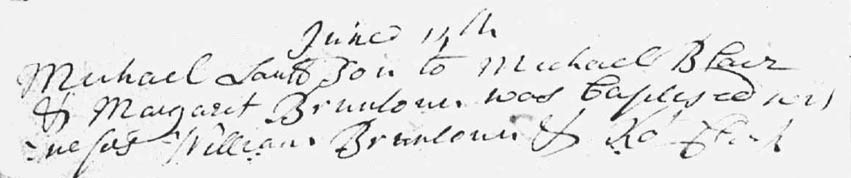 June 14th
Michael Lau˜ Son to Michael Blair
& Margaret Brunlowe was baptised wit
nesses William Brunlowe & Ro:t